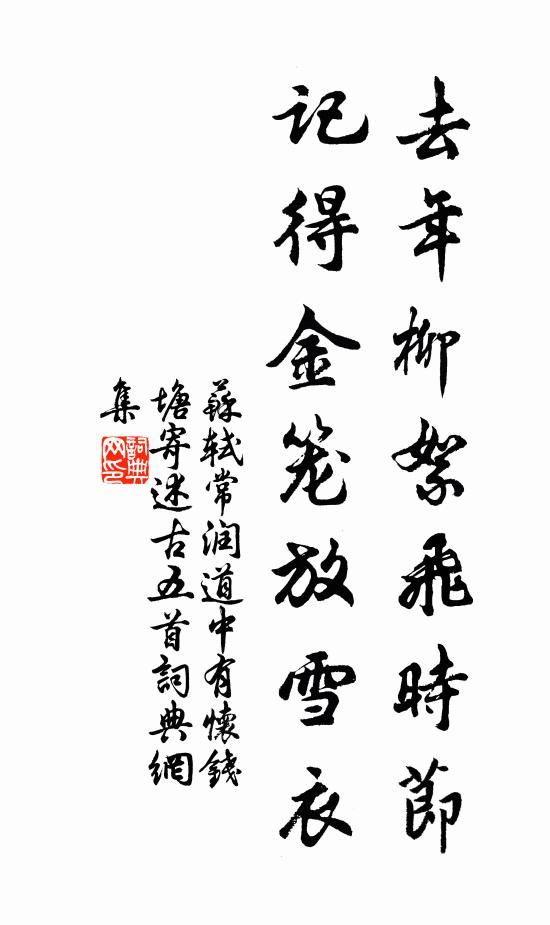 去年柳絮飛時節
記得金笼放雪衣
蘇轼常润道中有懷錢
塘寄述古五首詞典網
集
詞典網